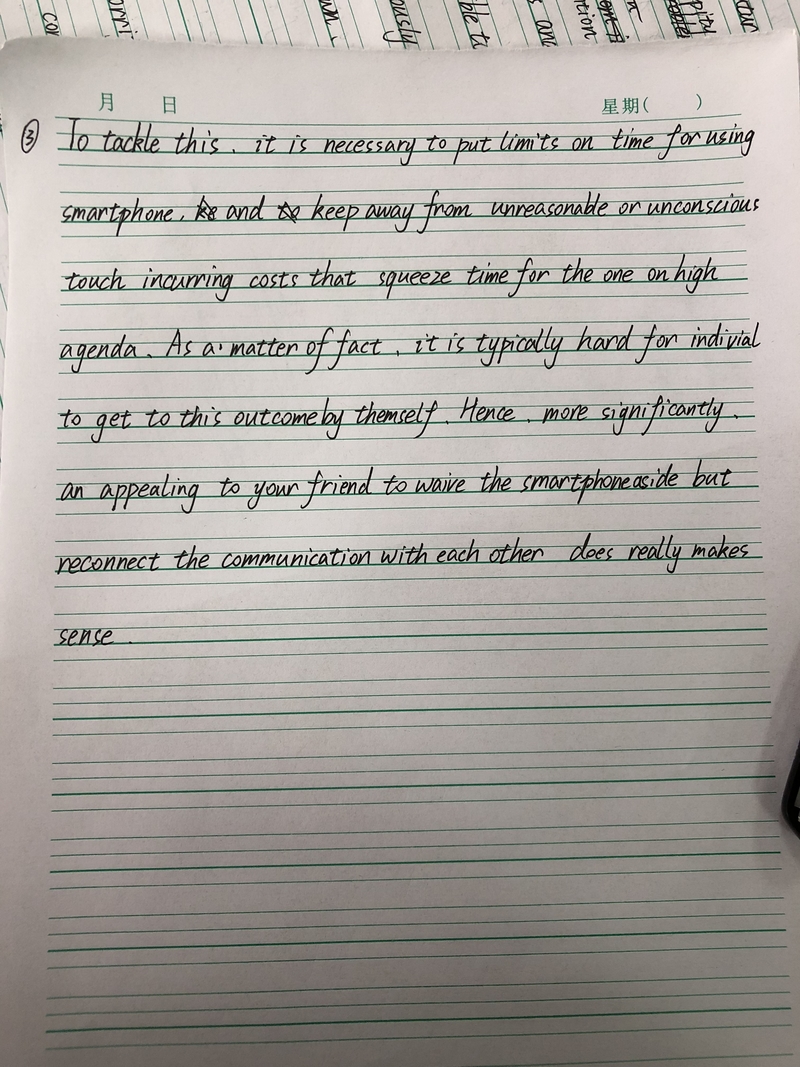 月 日 星期( )
③ To tackle this, it is necessary to put limits on time for using
smartphone, and keep away from unreasonable or unconscious
touch incurring costs that squeeze time for the one on high
agenda. As a matter of fact, it is typically hard for indivial
to get to this outcome by themself. Hence, more significantly,
an appealing to your friend to waive the smartphone aside but
reconnect the communication with each other does really makes
sense.